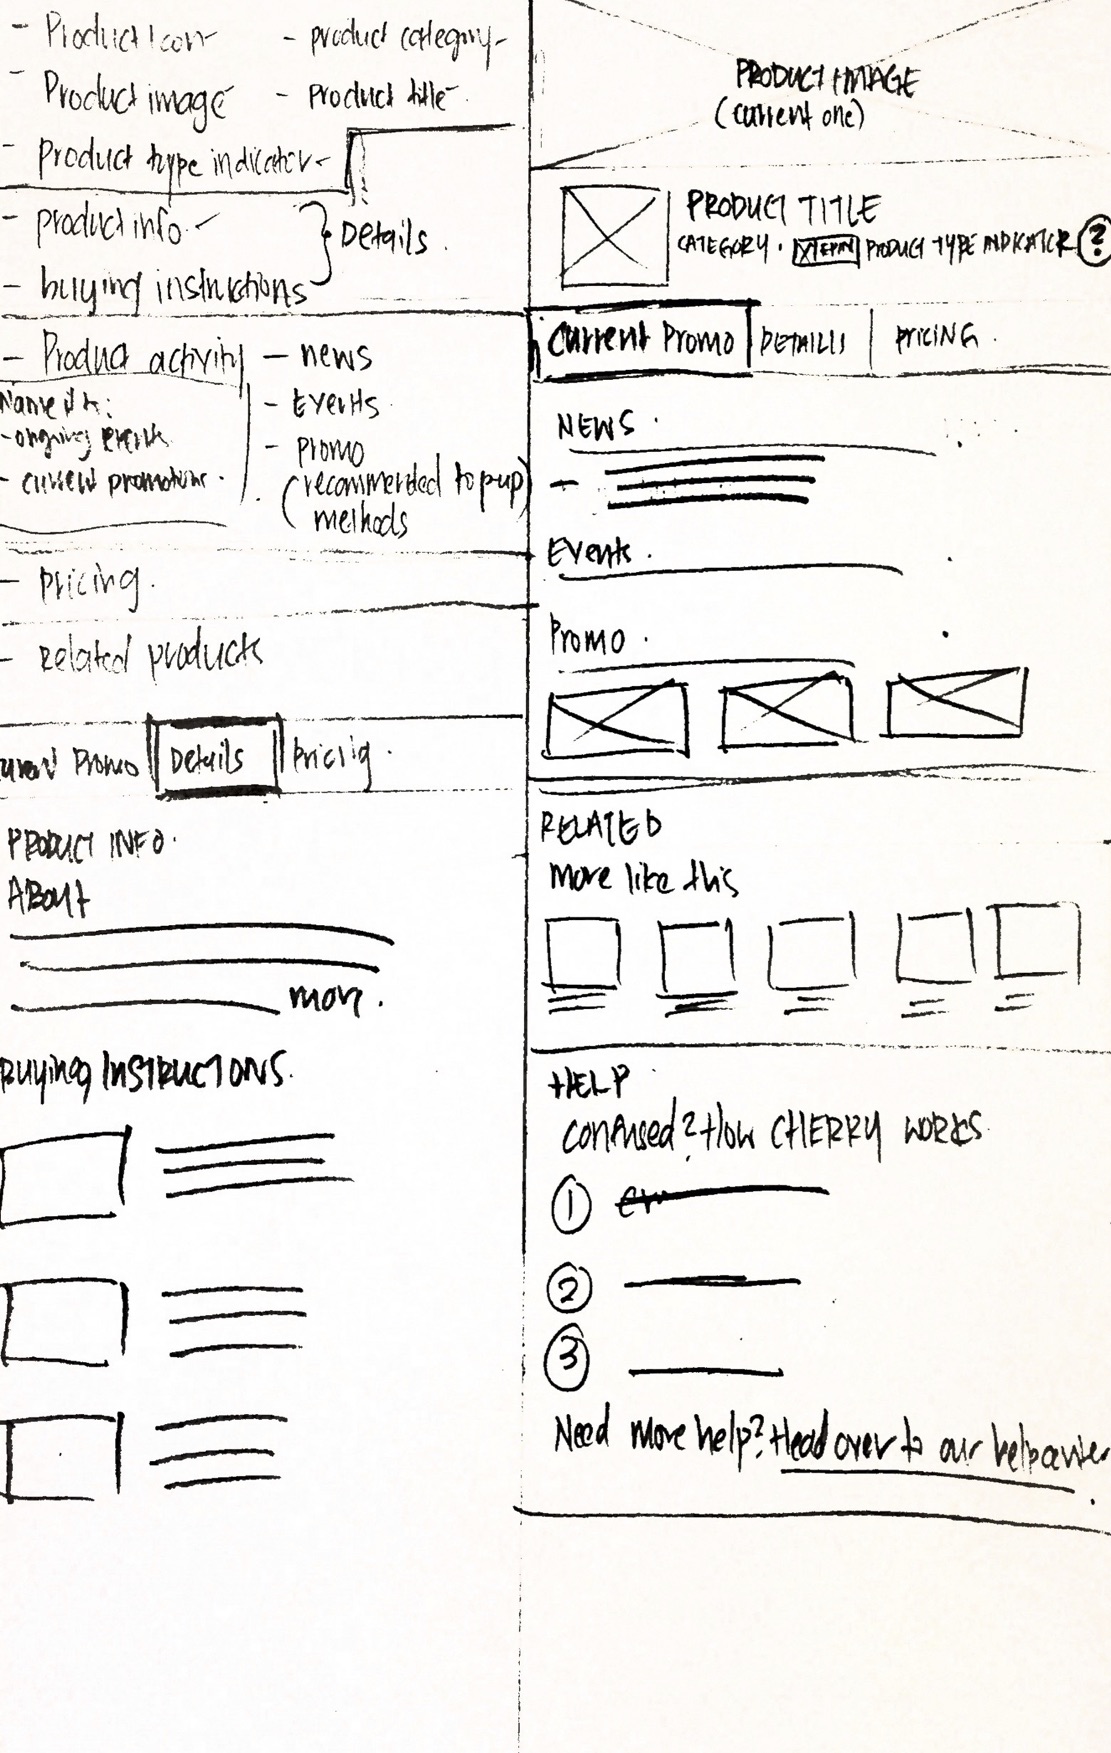 - Product Icon
- product category
- Product image
- product title
- product type indicator
- product info
- buying instructions
Details.
- Product activity
Name it to:
- ongoing events
- current promotions.
- news
- Events
- promo
(recommended topup)
methods
- pricing.
- Related products
Promo
Details
Pricing
PRODUCT INFO.
ABOUT
more.
BUying INSTRUCTIONS.
PRODUCT IMAGE
(current one)
PRODUCT TITLE
CATEGORY. PRODUCT TYPE INDICATOR ?
Current Promo
DETAILS
PRICING.
NEWS.
Events.
Promo.
RELATED
more like this
HELP
Confused? How CHERRY WORKS
1
2
3
Need more help? Head over to our helpcenter